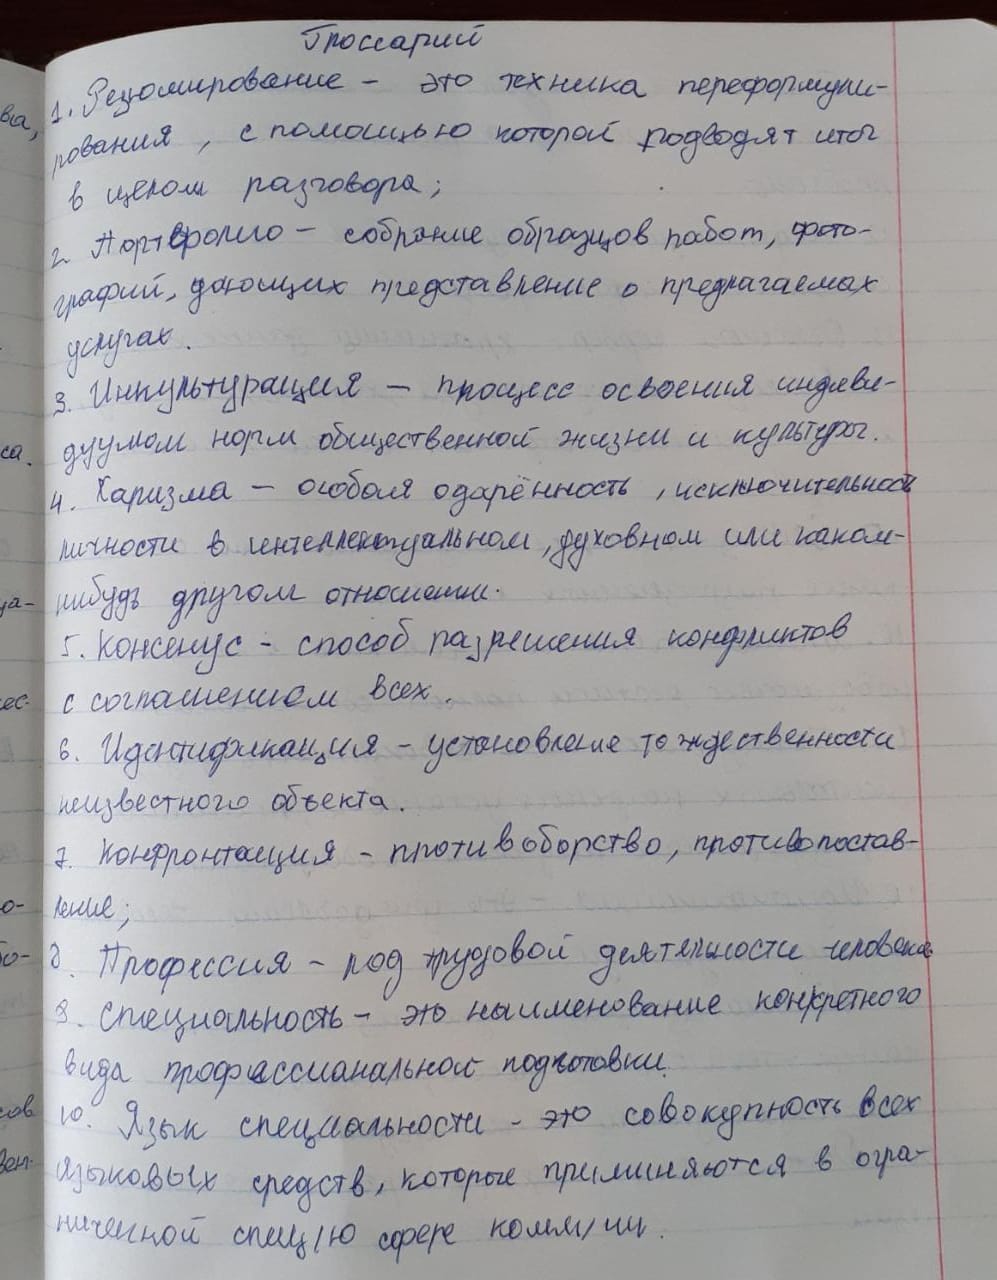 Глоссарий
1. Резюмирование – это техника переформули-
рования, с помощью которой подводят итог
в целом разговора;
2. Портфолио – собрание образцов работ, фото-
графий, дающих представление о предлагаемах
услугах.
3. Инкультурация – процесс освоения индиви-
дуумом норм общественной жизни и культуры.
4. Харизма – особая одарённость, исключительность
личности в интеллектуальном, духовном или каком-
нибудь другом отношении.
5. Консенус – способ разрешения конфликтов
с соглашением всех.
6. Идентификация – установление тождественности
неизвестного объекта.
7. Конфронтация – противоборство, противопостав-
ление;
8. Профессия – род трудовой деятельности человека
9. Специальность – это наименование конкретного
вида профессиональной подготовки.
10. Язык специальности – это совокупность всех
языковых средств, которые применяются в огра-
ниченной спец/ю сфере комм/ции.
ва,
са.
уа-
ес-
о-
бо-
сов
вен-